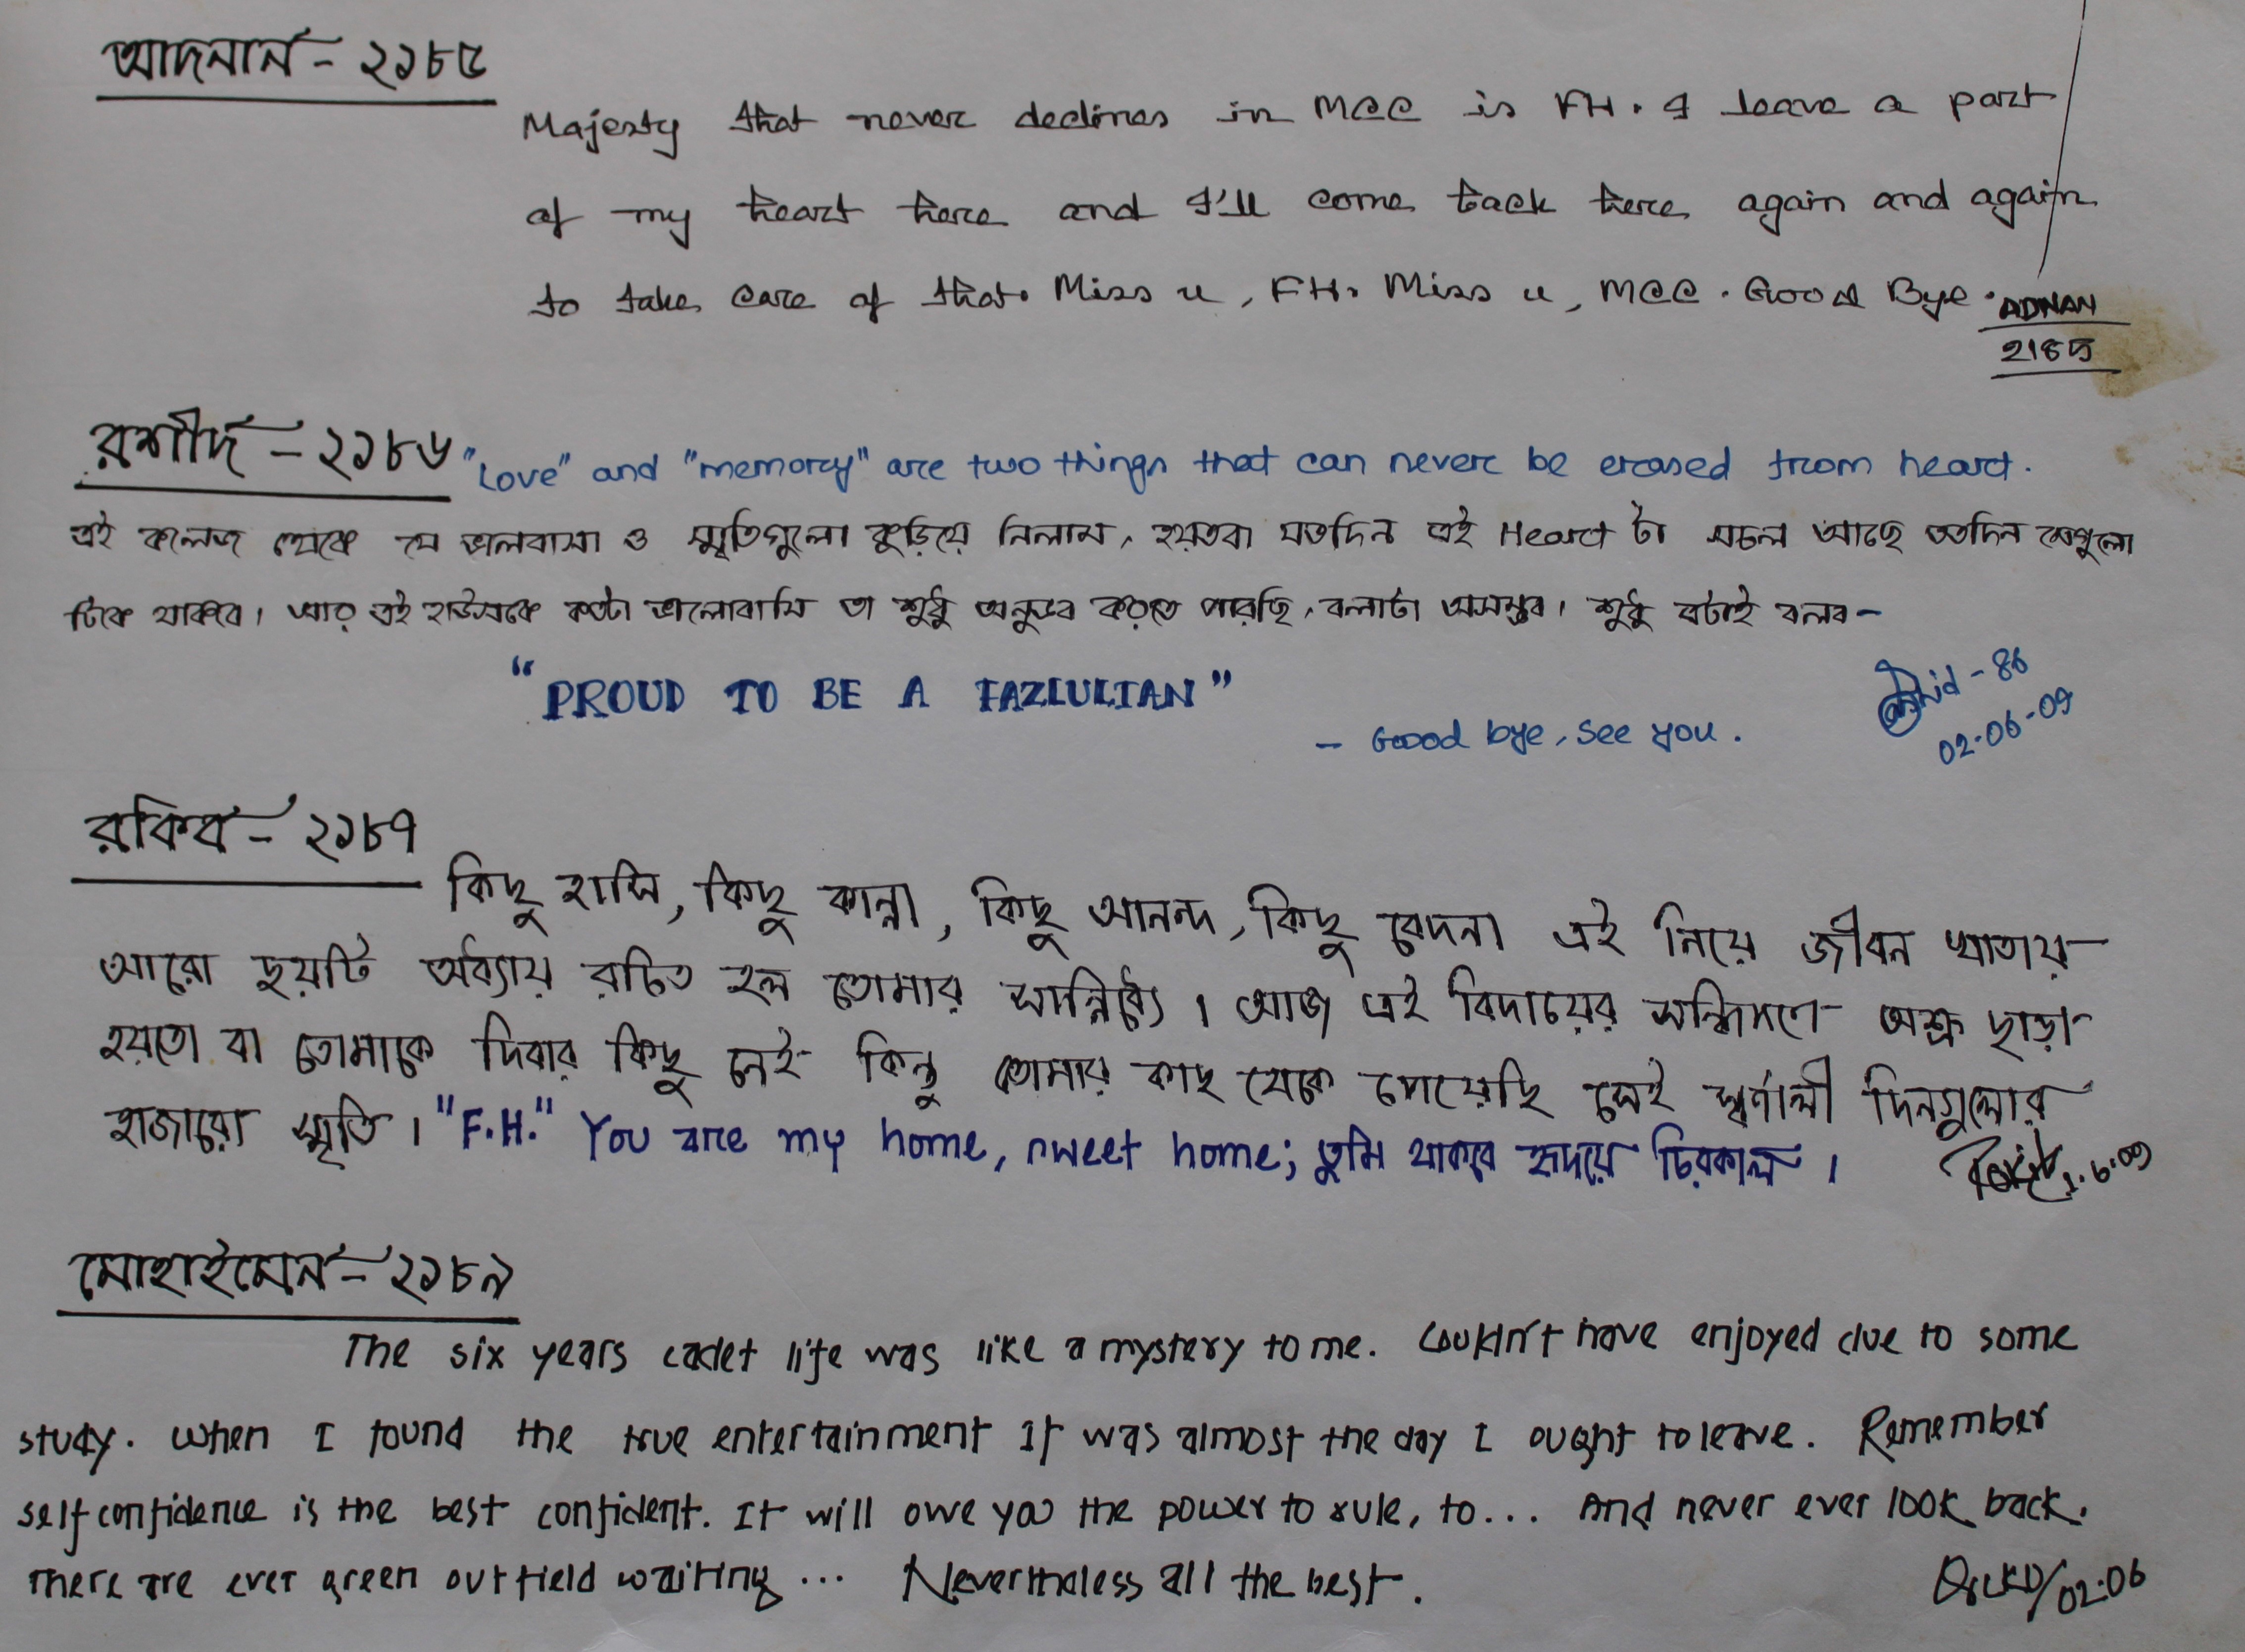 আদনান - ২১৮৫
Majesty that never declines in MCC is FH. I leave a part
of my heart here and I'll come back here again and again
to take care of that. Miss u, FH. Miss u, MCC. Good Bye.
ADNAN
2185
রশীদ - ২১৮৬
"Love" and "memory" are two things that can never be erased from heart.
এই কলেজ থেকে যে ভালবাসা ও স্মৃতিগুলো কুড়িয়ে নিলাম, হয়তবা যতদিন এই Heart টা সচল আছে ততদিন সেগুলো
টিকে থাকবে। আর এই হাউসকে কতটা ভালোবাসি তা শুধু অনুভব করতে পারছি, বলাটা অসম্ভব। শুধু এটাই বলব-
"PROUD TO BE A FAZLULIAN"
- Good bye, see you.
-86
02-06-09
রকিব - ২১৮৭
কিছু হাসি, কিছু কান্না, কিছু আনন্দ, কিছু বেদনা এই নিয়ে জীবন খাতায়
আরো ছয়টি অধ্যায় রচিত হল তোমার সান্নিধ্যে। আজ এই বিদায়ের সন্ধিক্ষণে অশ্রু ছাড়া
হয়তো বা তোমাকে দিবার কিছু নেই কিন্তু তোমার কাছ থেকে পেয়েছি সেই স্বর্ণালী দিনগুলোর
হাজারো স্মৃতি। "F.H." You are my home, sweet home; তুমি থাকবে হৃদয়ে চিরকাল।
মোহাইমেন - ২১৮৯
The six years cadet life was like a mystery to me. Couldn't have enjoyed due to some
study. When I found the true entertainment it was almost the day I ought to leave. Remember
self confidence is the best confident. It will owe you the power to rule, to... And never ever look back.
There are ever green outfield waiting... Nevertheless all the best.
02.06